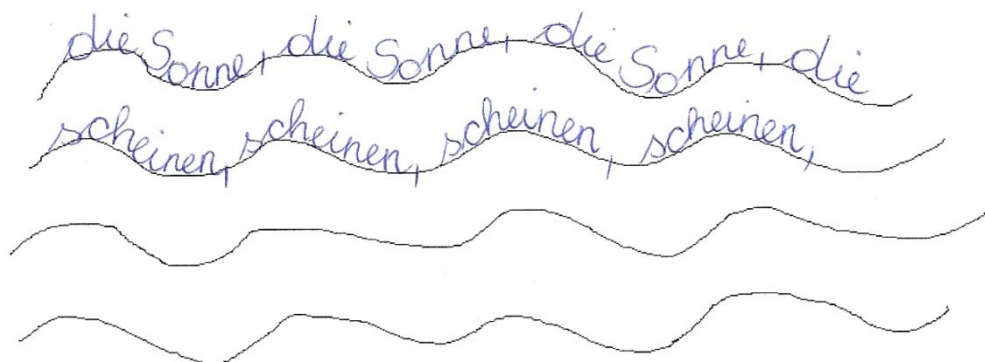 die Sonne, die Sonne, die Sonne, die
scheinen, scheinen, scheinen, scheinen,